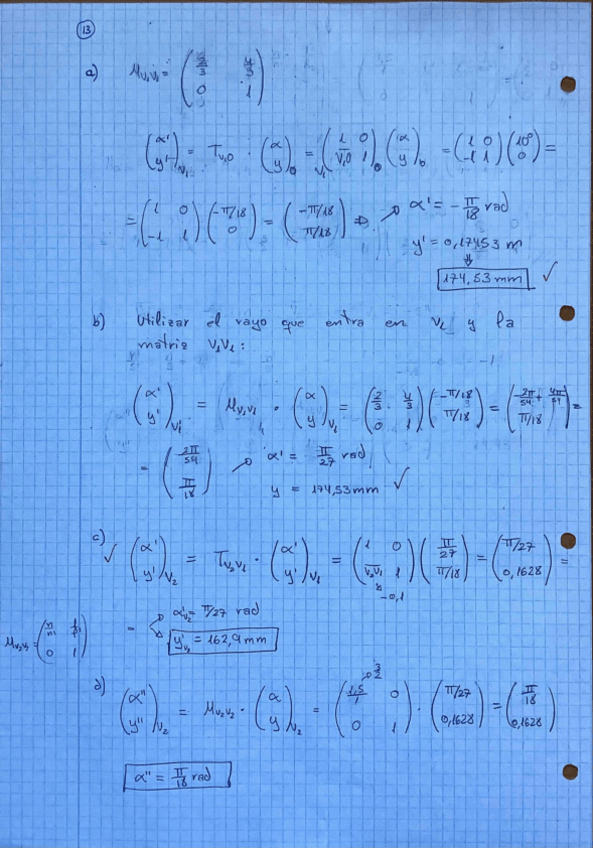 13
a) M_{V1V1'} = \begin{pmatrix} \frac{2}{3} & \frac{4}{3} \\ 0 & 1 \end{pmatrix}
\begin{pmatrix} α' \\ y' \end{pmatrix}_{V1} = T_{V1O} · \begin{pmatrix} α \\ y \end{pmatrix}_O = _{V1}\begin{pmatrix} 1 & 0 \\ \overline{V1O} & 1 \end{pmatrix}_O \begin{pmatrix} α \\ y \end{pmatrix}_O = \begin{pmatrix} 1 & 0 \\ -1 & 1 \end{pmatrix} \begin{pmatrix} 10° \\ 0 \end{pmatrix} =
= \begin{pmatrix} 1 & 0 \\ -1 & 1 \end{pmatrix} \begin{pmatrix} -π/18 \\ 0 \end{pmatrix} = \begin{pmatrix} -π/18 \\ π/18 \end{pmatrix} ⇒ α' = -\frac{π}{18} rad
y' = 0,17453 m
174,53 mm ✓
b) Utilizar el rayo que entra en V1 y la
matriz V1V1:
\begin{pmatrix} α' \\ y' \end{pmatrix}_{V1'} = M_{V1V1} · \begin{pmatrix} α \\ y \end{pmatrix}_{V1} = \begin{pmatrix} \frac{2}{3} & \frac{4}{3} \\ 0 & 1 \end{pmatrix} \begin{pmatrix} -π/18 \\ π/18 \end{pmatrix} = \begin{pmatrix} -\frac{2π}{54} + \frac{4π}{54} \\ π/18 \end{pmatrix} =
= \begin{pmatrix} \frac{2π}{54} \\ \frac{π}{18} \end{pmatrix} α' = \frac{π}{27} rad
y = 174,53 mm ✓
c) ✓ \begin{pmatrix} α' \\ y' \end{pmatrix}_{V2} = T_{V2V1} · \begin{pmatrix} α' \\ y' \end{pmatrix}_{V1} = \begin{pmatrix} 1 & 0 \\ \overline{V2V1} & 1 \end{pmatrix} \begin{pmatrix} \frac{π}{27} \\ π/18 \end{pmatrix} = \begin{pmatrix} π/27 \\ 0,1628 \end{pmatrix} =
-0,1
= α'_{V2} = π/27 rad
y'_{V2} = 162,9 mm
M_{V2V2} = \begin{pmatrix} \frac{n}{n'} & \frac{1}{f'} \\ 0 & 1 \end{pmatrix}
d) \begin{pmatrix} α'' \\ y'' \end{pmatrix}_{V2} = M_{V2V2} · \begin{pmatrix} α \\ y \end{pmatrix}_{V2} = \begin{pmatrix} \frac{1,5}{1} & 0 \\ 0 & 1 \end{pmatrix} · \begin{pmatrix} π/27 \\ 0,1628 \end{pmatrix} = \begin{pmatrix} \frac{π}{18} \\ 0,1628 \end{pmatrix}
\frac{3}{2}
α'' = \frac{π}{18} rad